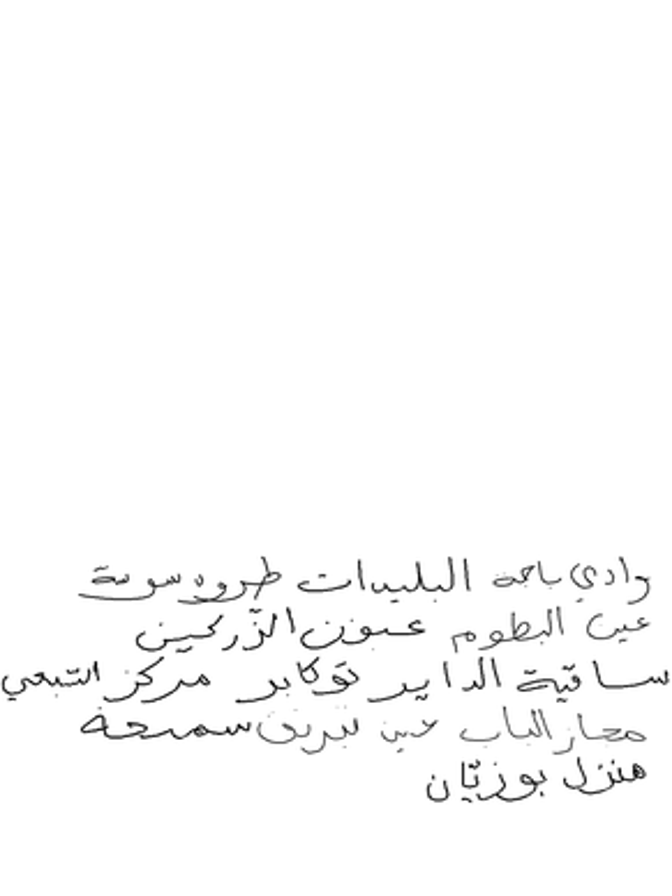 وادي باجة البليدات طرودسونة
عين البطوم عيون الزّركين
ساقية الداير توكابر مركز الشبعي
مجاز الباب عين سمبحة
منزل بوزيّان